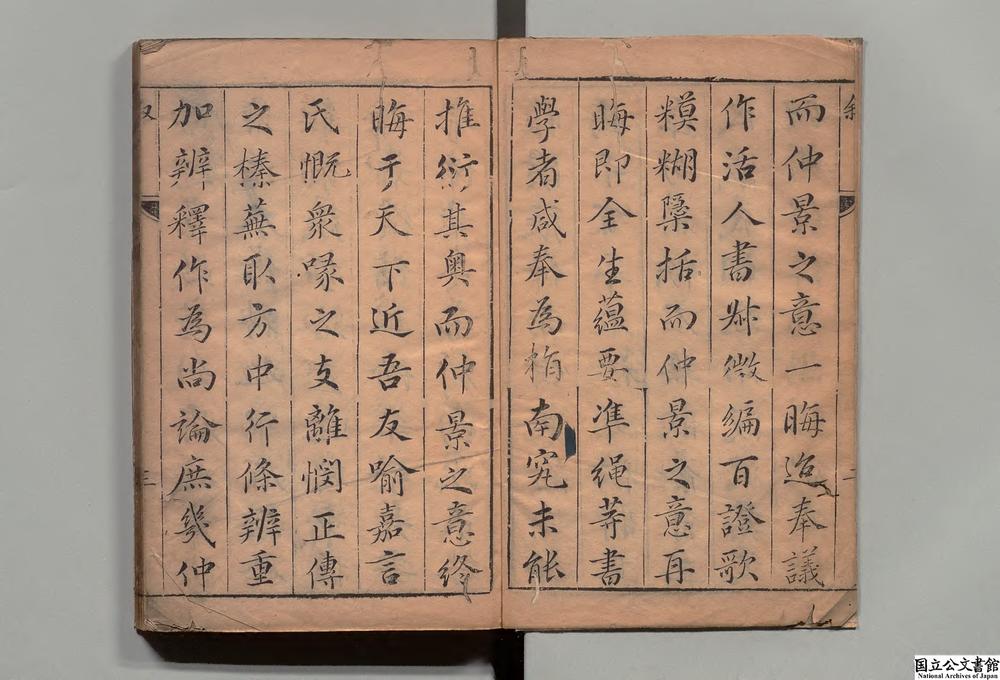 而仲景之意一晦迨奉議
作活人書叔微編百證歌
糢糊檃括而仲景之意再
晦即全生蘊要準繩等書
學者咸奉為指南究未能
推衍其奧而仲景之意終
晦于天下近吾友喻嘉言
氏慨衆喙之支離憫正傳
之榛蕪取方中行條辨重
加辨釋作為尚論庶幾仲
叙
三
国立公文書館
National Archives of Japan